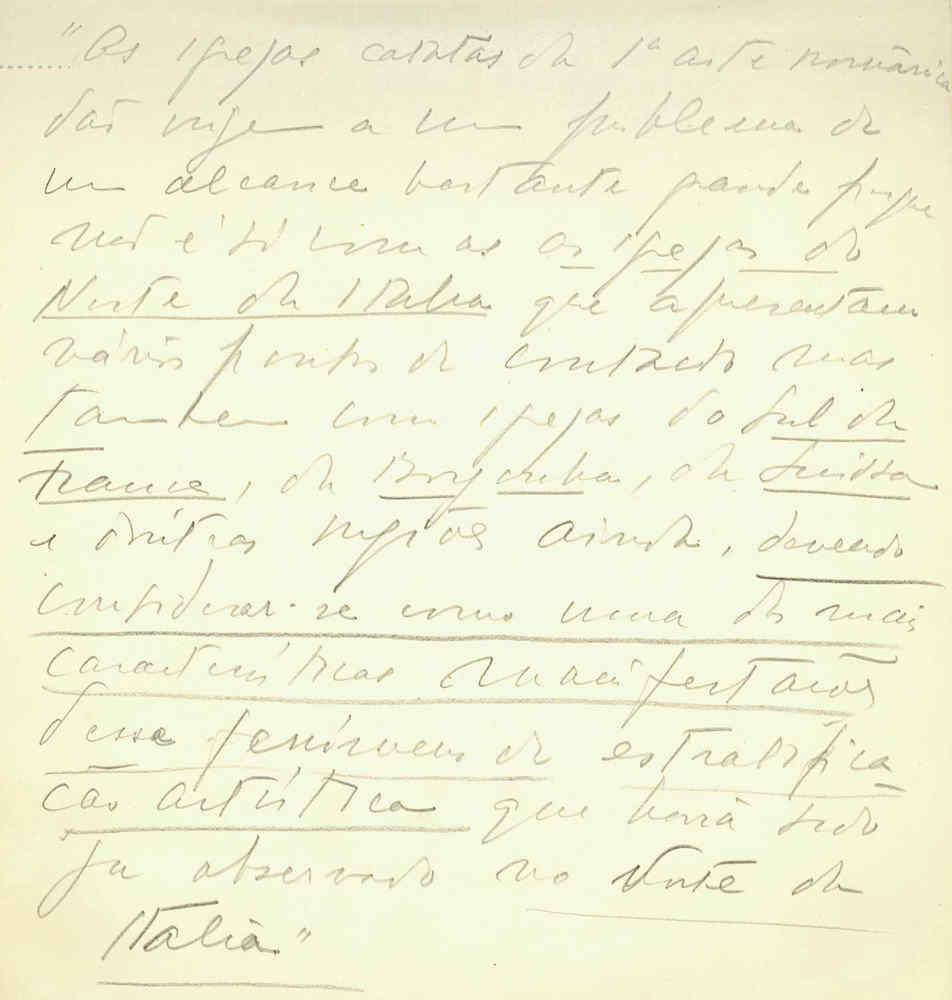 "As igrejas catalãs da 1ª arte românica
dão origem a um problema de
um alcance bastante grande porque
não é só com as as igrejas do
Norte da Italia que apresentam
vários pontos de contacto mas
tambem com igrejas do Sul da
França, da Borgonha, da Suissa
e doutras regiões ainda, devendo
considerar-se como uma das mais
características manifestações
desse fenómeno de estratifica
ção artística que havia sido
já observado no Norte da
Italia"